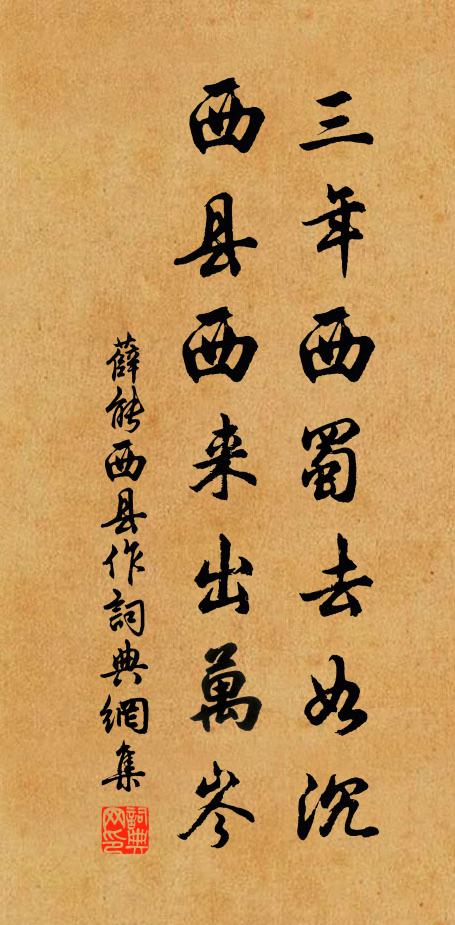 三年西蜀去如沉
西县西来出萬岑
薛能西县作詞典網集
詞典网印